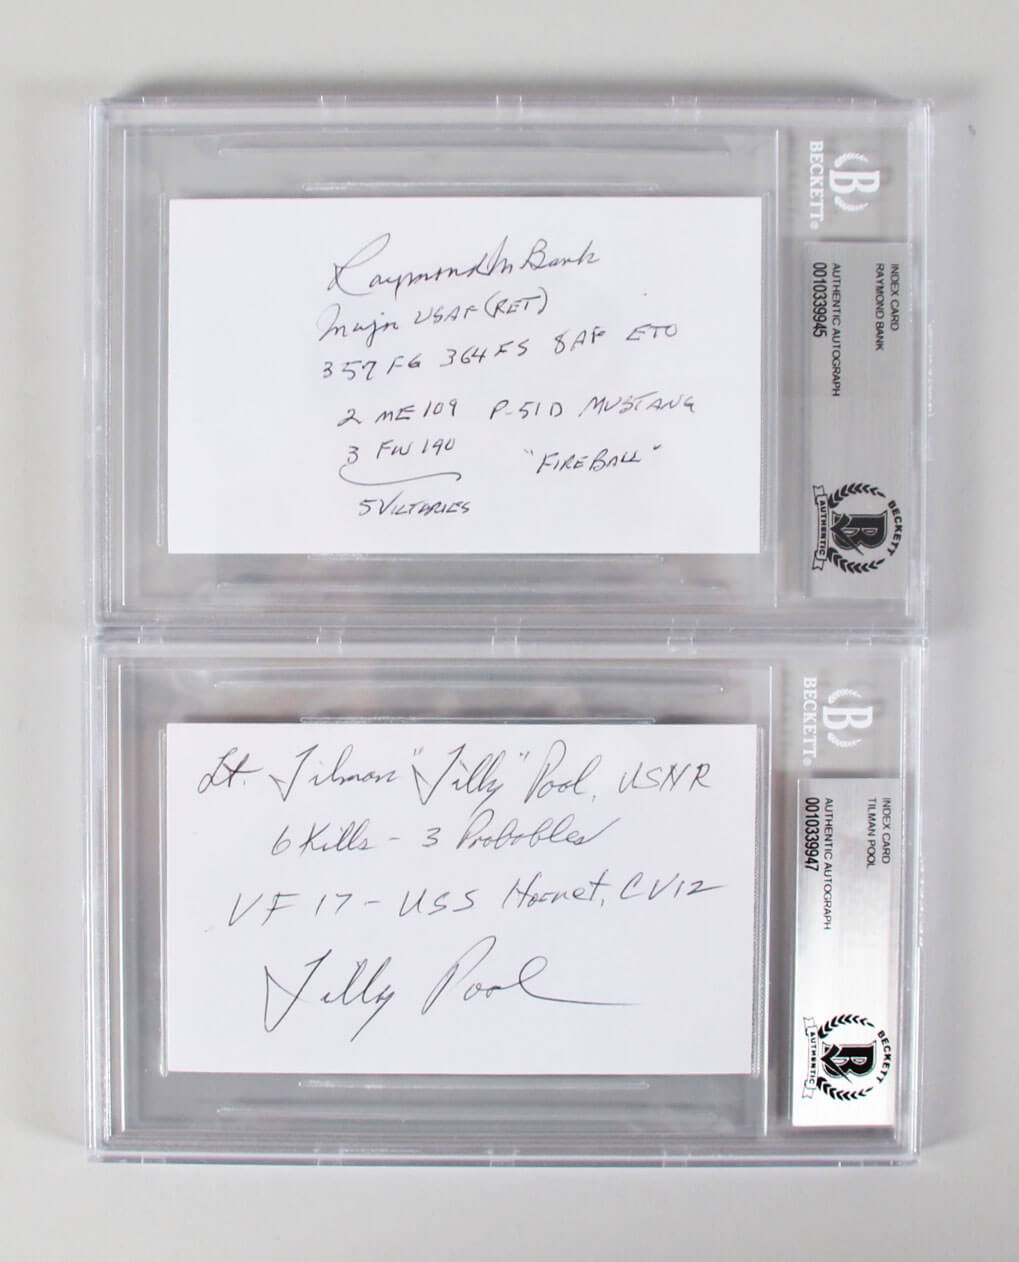 Raymond M Bank
Major USAF (RET)
357 FG 364 FS 8AF ETO
2 ME 109 P-51D MUSTANG
3 FW 190 "FIREBALL"
5 VICTORIES
BECKETT®
B
INDEX CARD
RAYMOND BANK
AUTHENTIC AUTOGRAPH
0010339945
BECKETT
B
AUTHENTIC
Lt. Tilman "Tilly" Pool, USNR
6 Kills - 3 Probables
VF 17 - USS Hornet, CV12
Tilly Pool
BECKETT®
B
INDEX CARD
TILMAN POOL
AUTHENTIC AUTOGRAPH
0010339947
BECKETT
B
AUTHENTIC